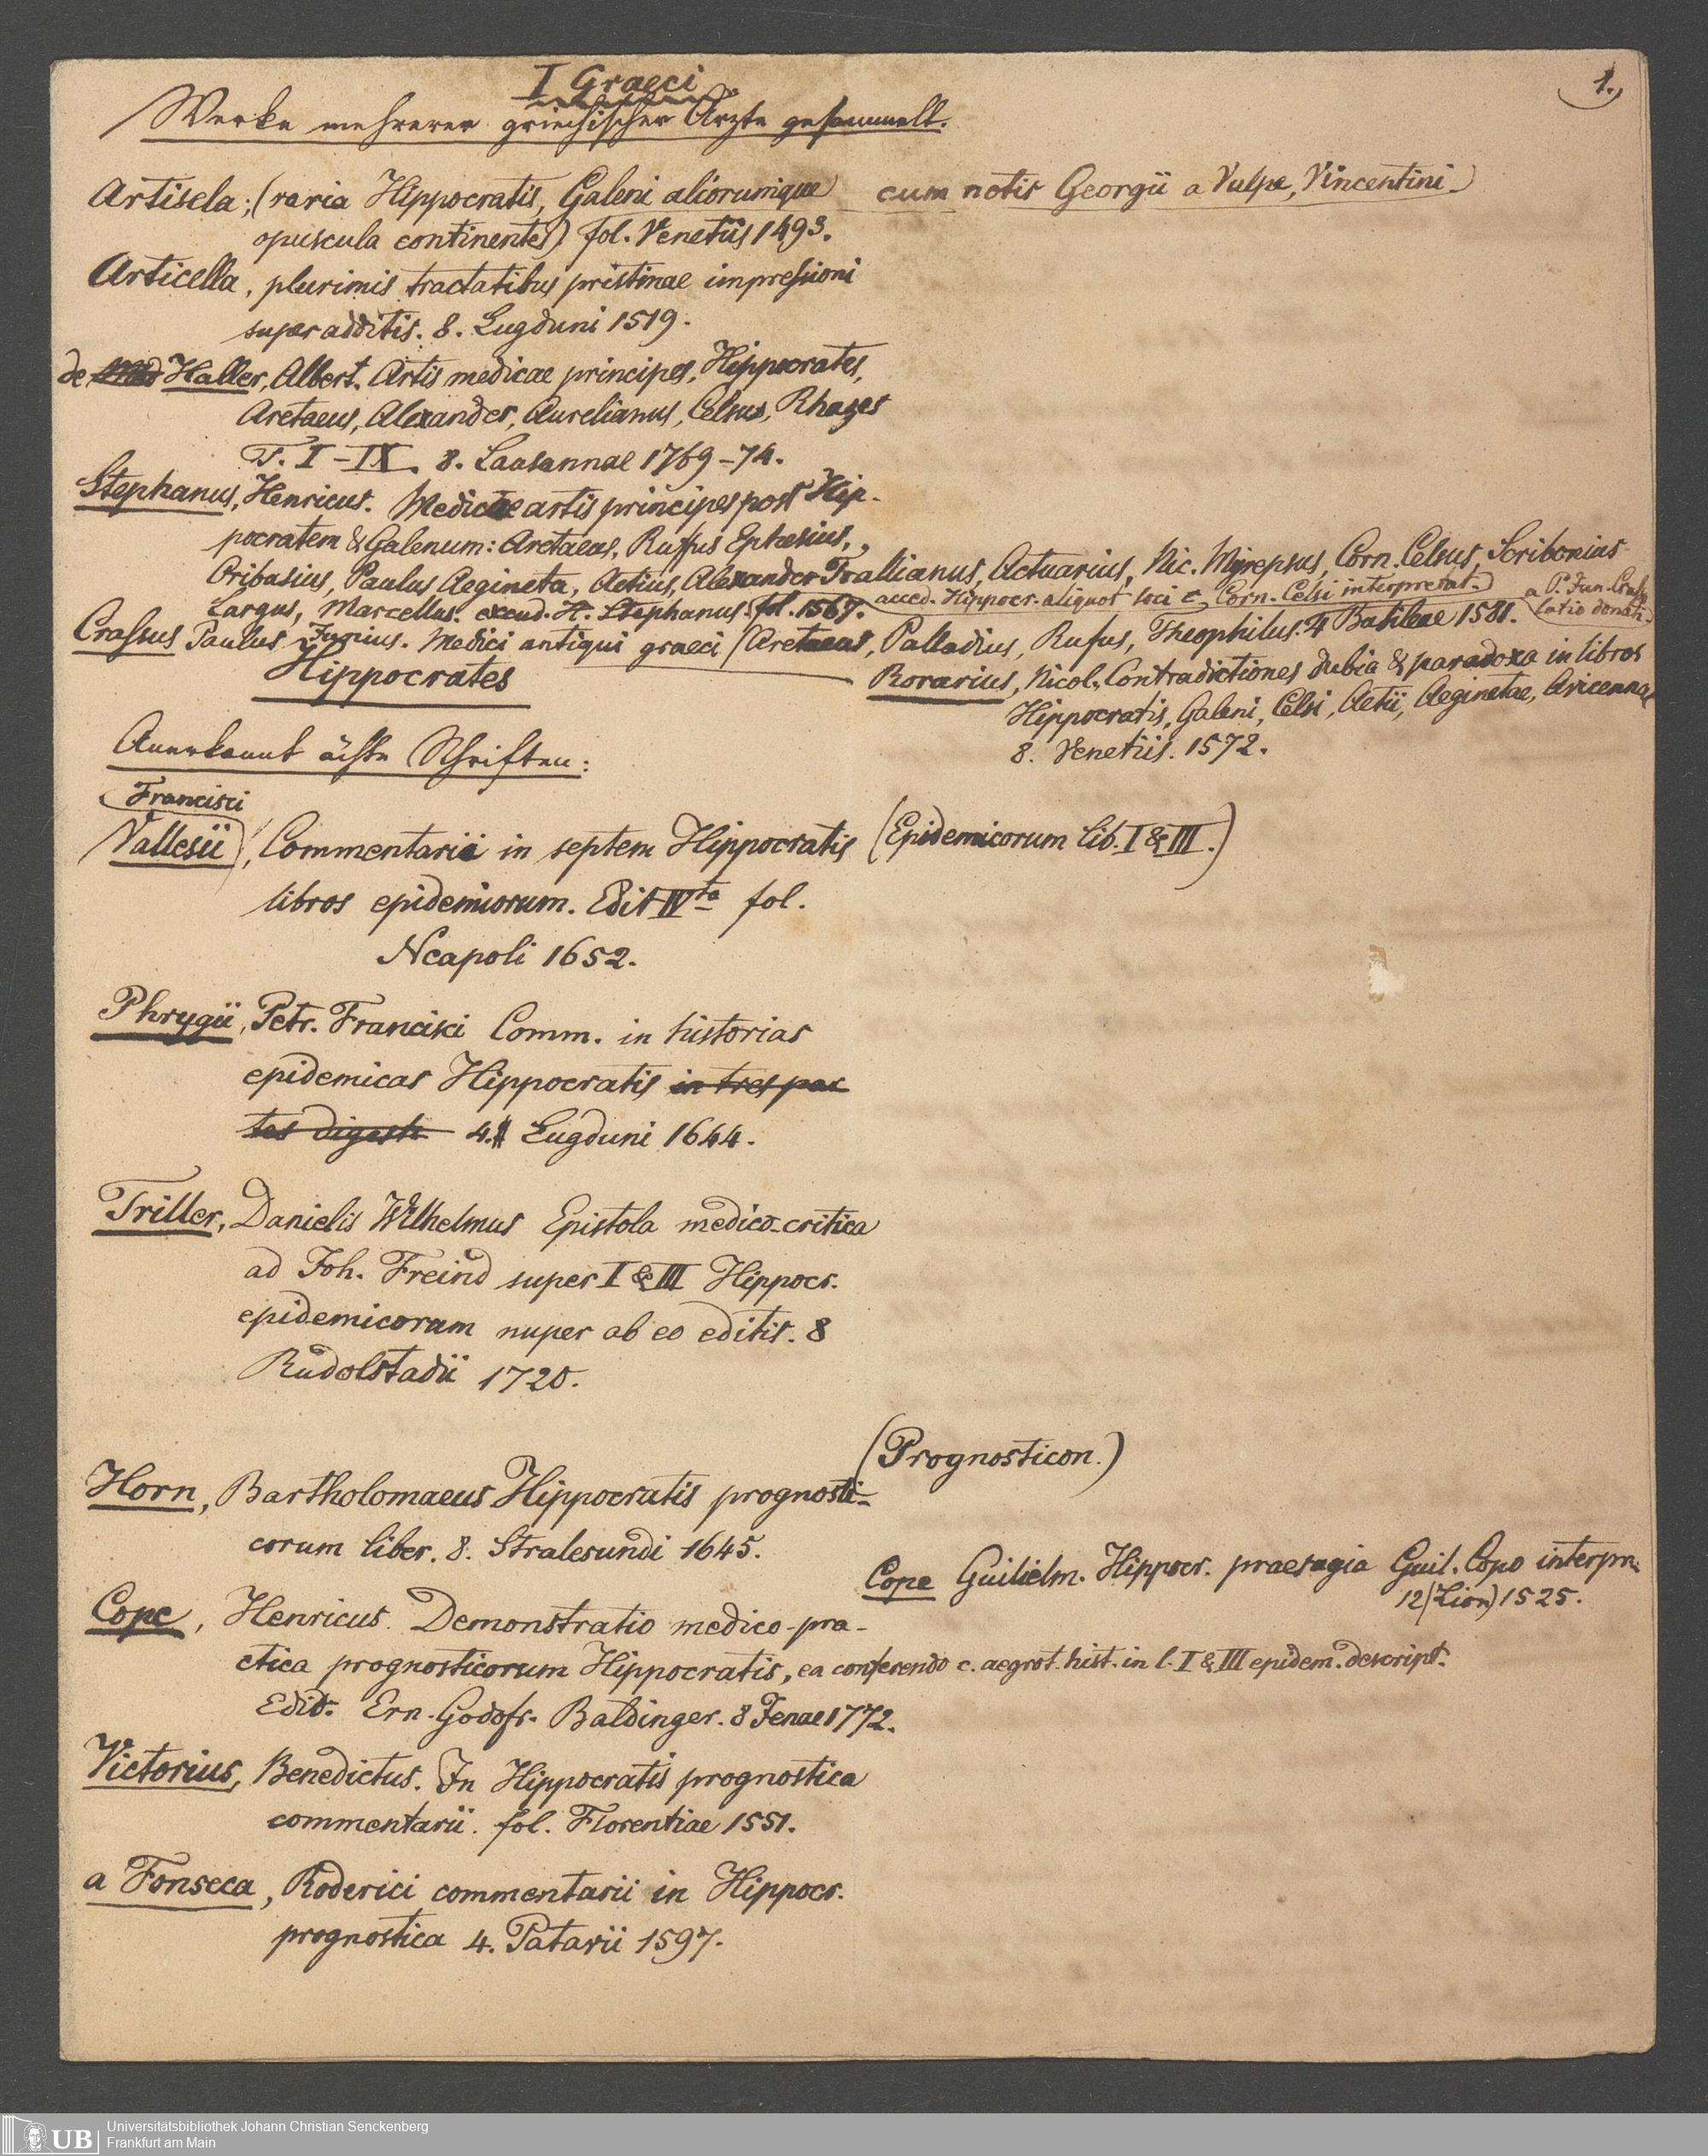 I Graeci
1.
Werke mehrerer griechischer Ärzte gesammelt.
Artisela; (varia Hippocratis, Galeni aliorumque cum notis Georgii a Vulpe, Vincentini
opuscula continentes) fol. Venetiis 1493.
Articella, plurimis tractatibus pristinae impressioni
superadditis. 8. Lugduni 1519.
de Haller, Albert. Artis medicae principes, Hippocrates,
Aretaeus, Alexander, Aurelianus, Celsus, Rhazes
T. I – IX. 8. Lausannae 1769–74.
Stephanus, Henricus. Medicae artis principes post Hip-
pocratem & Galenum: Aretaeus, Ruffus Ephesius,
Oribasius, Paulus Aegineta, Aetius, Alexander Trallianus, Actuarius, Nic. Myrepsus, Corn. Celsus, Scribonius
Largus, Marcellus. excud. H. Stephanus. fol. 1567. acced. Hippocr. aliquot loci c. Corn. Celsi interpretat.
Crassus Paulus Junius. Medici antiqui graeci (Aretaeus, Palladius, Rufus, Theophilus. 4 Basileae 1581. a P. Jun. Crasso
latio donati)
Hippocrates
Rorarius, Nicol. Contradictiones dubia & paradoxa in libros
Hippocratis, Galeni, Celsi, Aetii, Aeginetae, Avicennae
8. Venetiis. 1572.
Anerkannt ächte Schriften:
Francisci
Vallesii, Commentarii in septem Hippocratis (Epidemicorum lib. I & III.)
libros epidemiorum. Edit IVta fol.
Neapoli 1652.
Phrygii, Petr. Francisci Comm. in historias
epidemicas Hippocratis in tres par
tes digesti 4. Lugduni 1644.
Triller, Danielis Wilhelmus Epistola medico-critica
ad Joh. Freind super I & III Hippocr.
epidemicorum nuper ab eo editis. 8
Rudolstadii 1720.
(Prognosticon.)
Horn, Bartholomaeus Hippocratis prognosti-
corum liber. 8. Stralesundi 1645.
Cope Guilielm. Hippocr. praesagia Guil. Copo interpr.
12 (Lion) 1525.
Cope, Henricus. Demonstratio medico-pra-
ctica prognosticorum Hippocratis, ea conferendo c. aegrot. hist. in l. I & III epidem. descript.
Edid. Ern. Godofr. Baldinger. 8 Jenae 1772.
Victorius, Benedictus. In Hippocratis prognostica
commentarii. fol. Florentiae 1551.
a Fonseca, Roderici commentarii in Hippocr.
prognostica 4. Patavii 1597.
UB Universitätsbibliothek Johann Christian Senckenberg
Frankfurt am Main